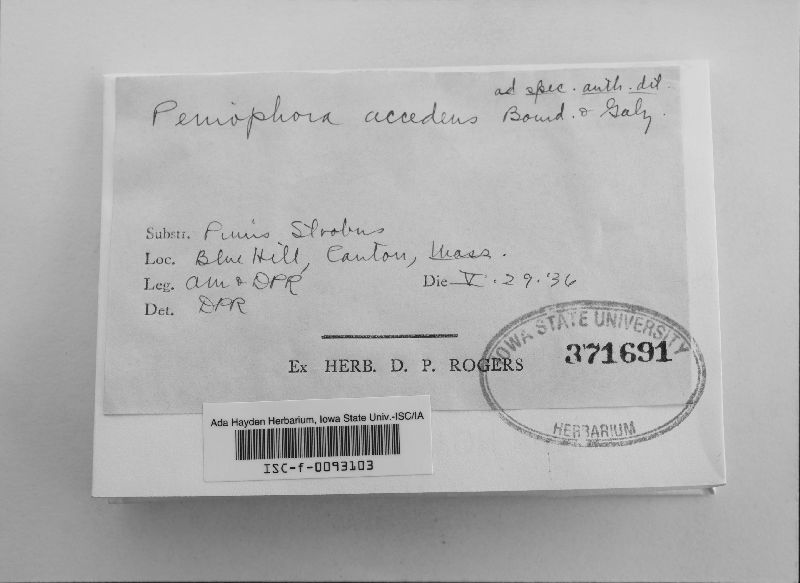 ad spec. auth. dit.
Peniophora accedens Bourd. & Galz.
Substr. Pinus Strobus
Loc. Blue Hill, Canton, Mass.
Leg. AM & DPR Die V.29.'36
Det. DPR
Ex HERB. D. P. ROGERS
IOWA STATE UNIVERSITY
371691
HERBARIUM
Ada Hayden Herbarium, Iowa State Univ.-ISC/IA
ISC-f-0093103